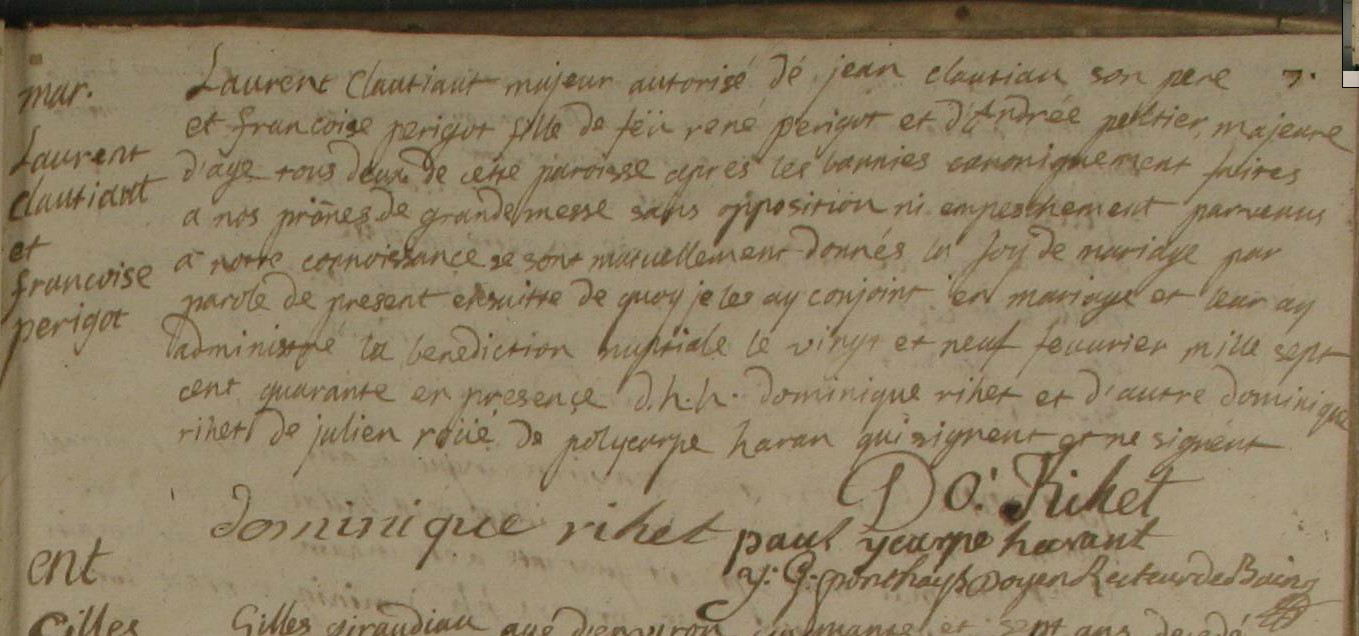 mar.
Laurent
clautiaut
et
francoise
perigot
Laurent Clautiaut majeur autorisé dé jean clautiau son pere 7.
et francoise perigot fille de feü rené perigot et d'Andrée peltier, majeure
d'age tous deux de cette paroisse apres les bannies canoniquement faites
a nos prônes de grande messe sans opposition ni empeschement parvenus
a notre connoissance se sont mutuellement donnés la foy de mariage par
parole de present ensuitte de quoy je les ay conjoint en mariage et leur ay
administré la benediction nuptiale le vingt et neuf feuurier mille sept
cent quarante en presence d.h.h. dominique rihet et d'autre dominique
rihet de julien roüé de polycarpe haran qui signent et ne signent
Do: Rihet
dominique rihet paul ycarpe harant
doyen Recteur de Baing
ent
Gilles
Gilles giraudiau agé d'enuiron cinquante et sept ans